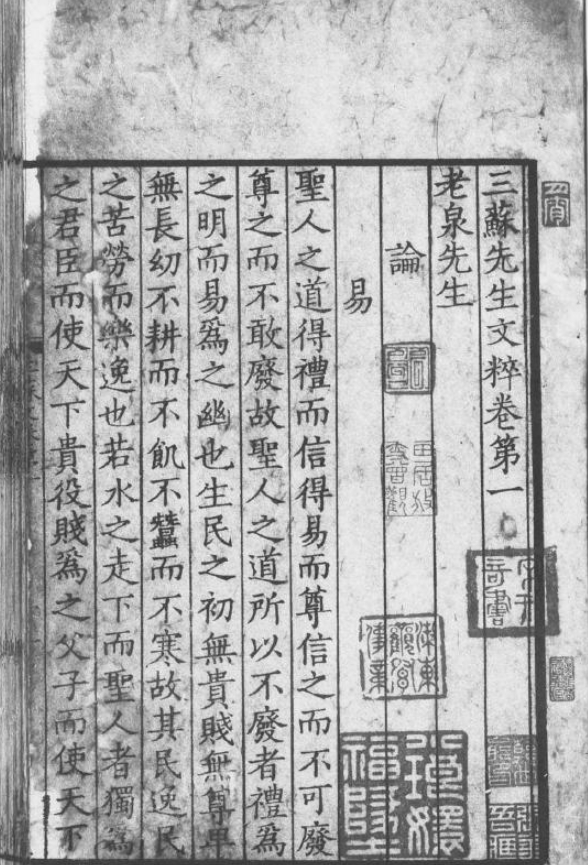 三蘇先生文粹卷第一
老泉先生
論
易
聖人之道得禮而信得易而尊信之而不可廢
尊之而不敢廢故聖人之道所以不廢者禮爲
之明而易爲之幽也生民之初無貴賤無尊卑
無長幼不耕而不飢不蠶而不寒故其民逸民
之苦勞而樂逸也若水之走下而聖人者獨爲
之君臣而使天下貴役賤爲之父子而使天下